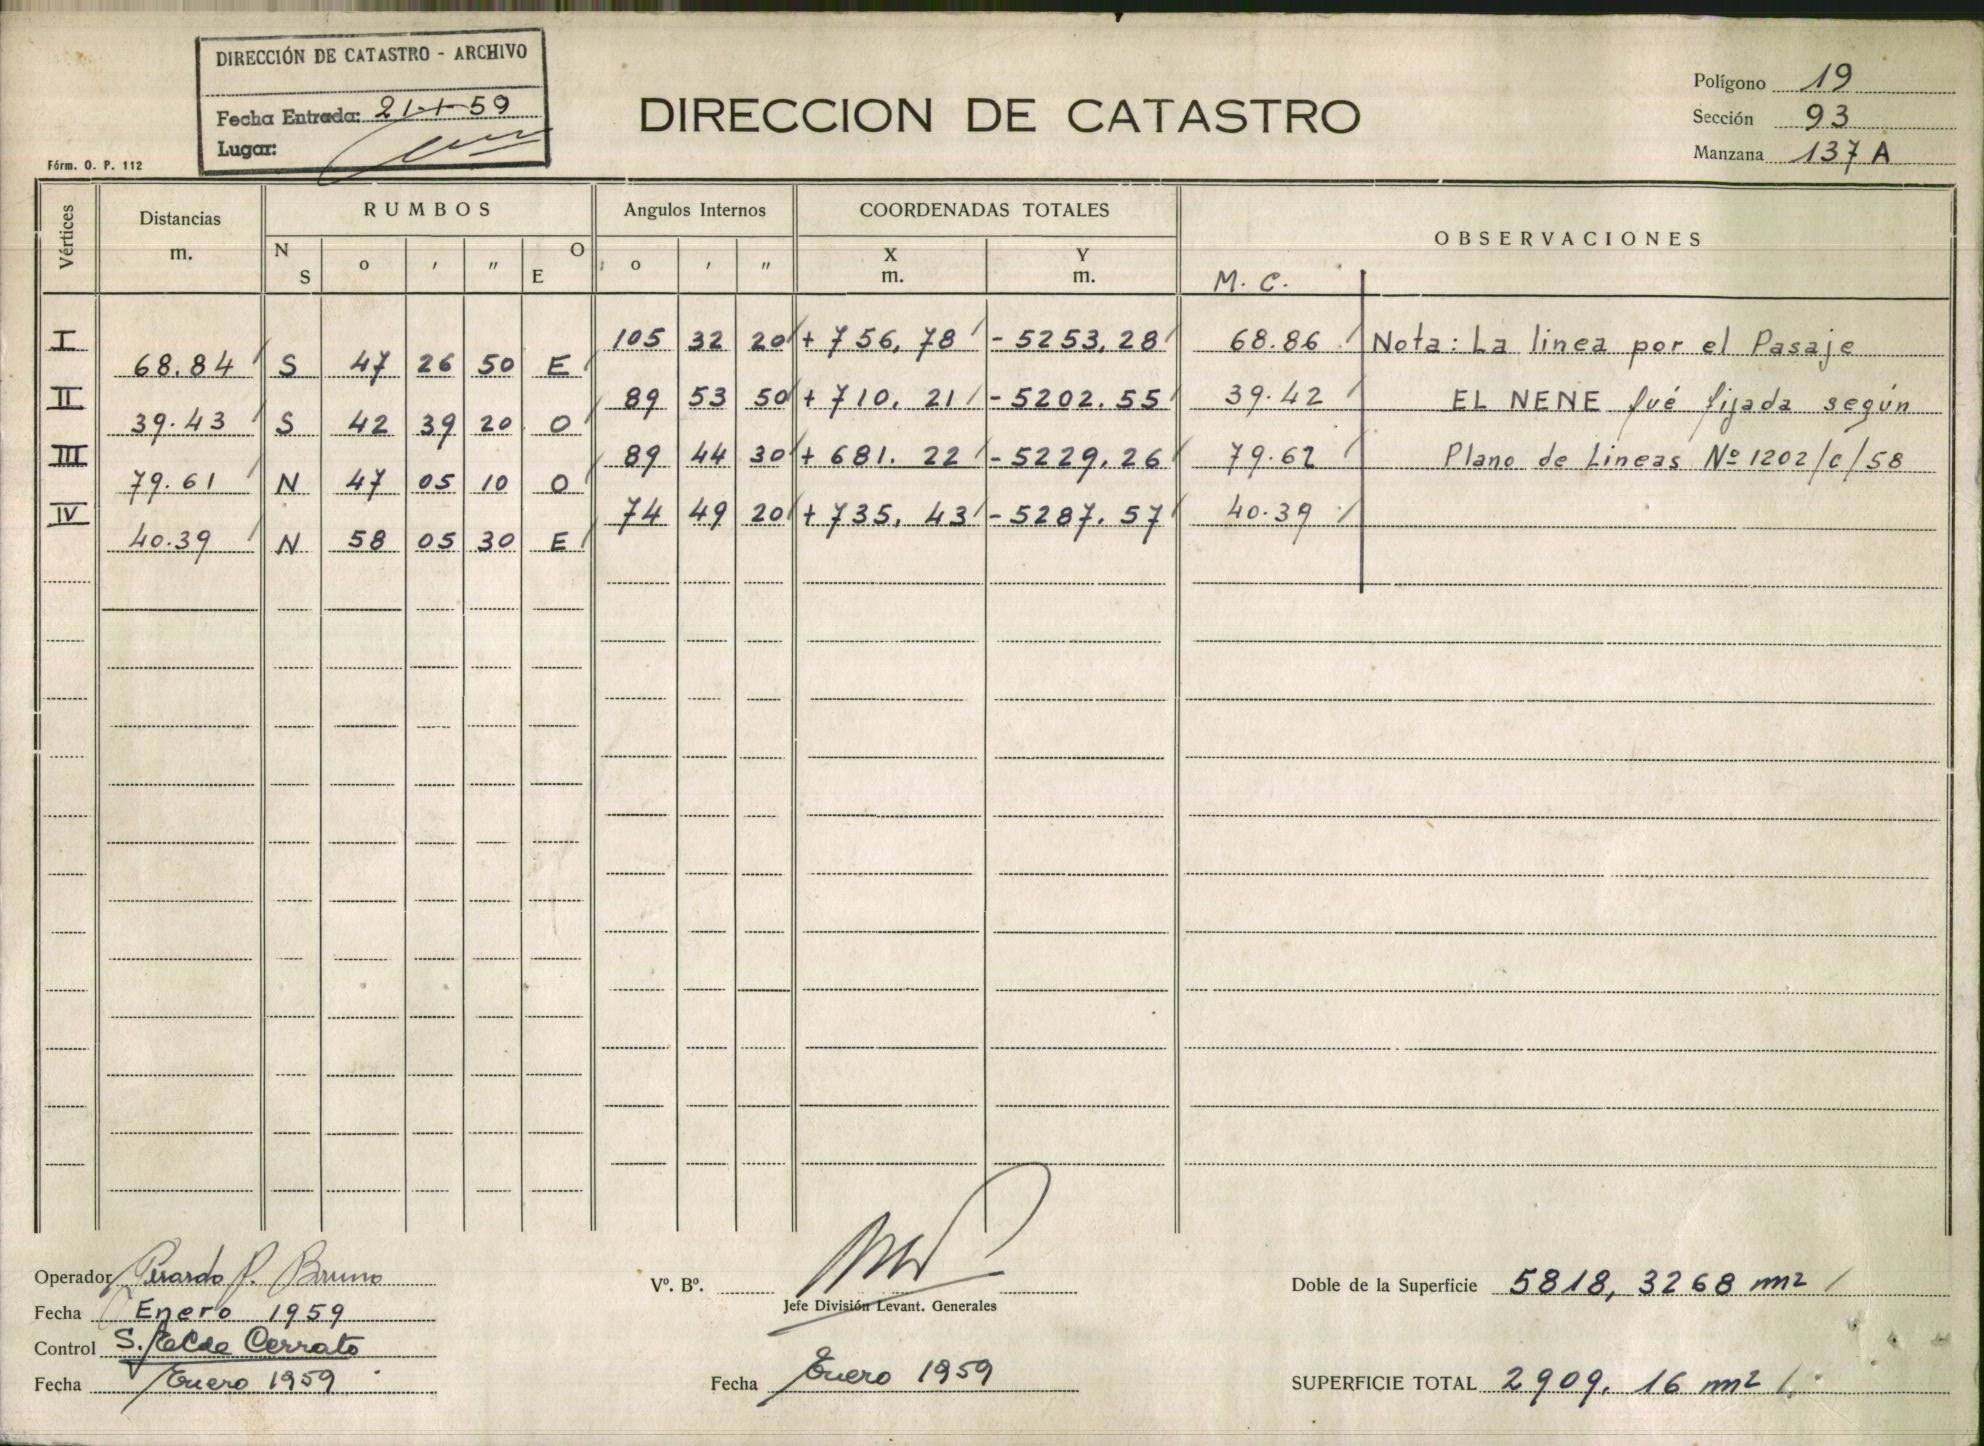 DIRECCIÓN DE CATASTRO - ARCHIVO
Fecha Entrada: 21-1-59
Lugar:
Fórm. O. P. 112
DIRECCION DE CATASTRO
Polígono 19
Sección 93
Manzana 137 A
Vértices
Distancias
m.
RUMBOS
N S
o
'
"
O E
Angulos Internos
o
'
"
COORDENADAS TOTALES
X
m.
Y
m.
OBSERVACIONES
M. C.
I 105 32 20 + 756, 78 - 5253, 28 68.86 Nota: La linea por el Pasaje
68.84 S 47 26 50 E
II 89 53 50 + 710. 21 - 5202. 55 39.42 EL NENE fué fijada según
39.43 S 42 39 20 O
III 89 44 30 + 681. 22 - 5229, 26 79.62 Plano de Lineas Nº 1202/C/58
79.61 N 47 05 10 O
IV 74 49 20 + 735, 43 - 5287. 57 40.39
40.39 N 58 05 30 E
Operador P. Bruno
Fecha Enero 1959
Control S. Cerrato
Fecha Enero 1959
Vº. Bº.
Jefe División Levant. Generales
Fecha Enero 1959
Doble de la Superficie 5818, 3268 m2
SUPERFICIE TOTAL 2909. 16 m2